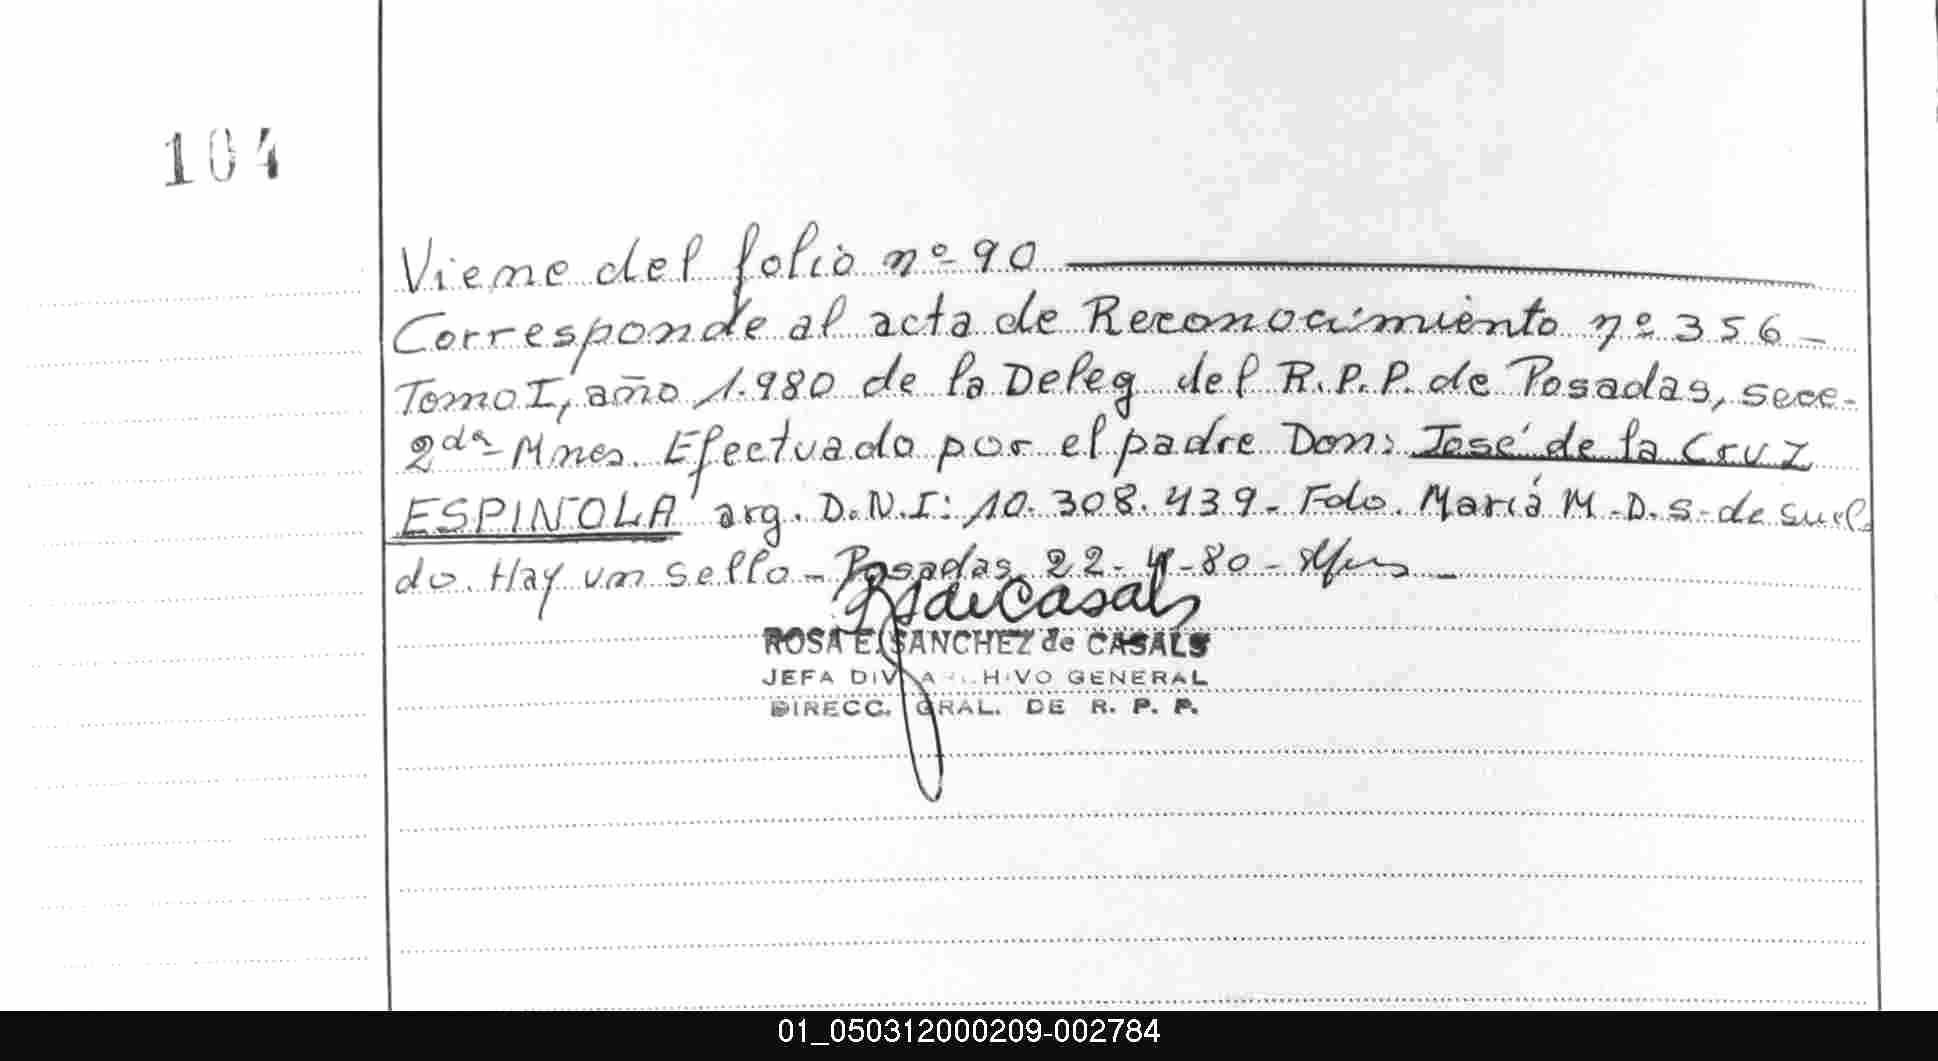 104
Viene del folio nº 90
Corresponde al acta de Reconocimiento nº 356-
Tomo I, año 1.980 de la Deleg del R.P.P. de Posadas, secc-
2da- Mnes. Efectuado por el padre Don: José de la Cruz
ESPINOLA arg. D.N.I: 10.308.439- Fdo. María M.D.S- de Suel
do. Hay un sello- Posadas 22-4-80-
ROSA E. SANCHEZ de CASALS
JEFA DIV A HIVO GENERAL
DIRECC. GRAL. DE R. P. P.
01_050312000209-002784